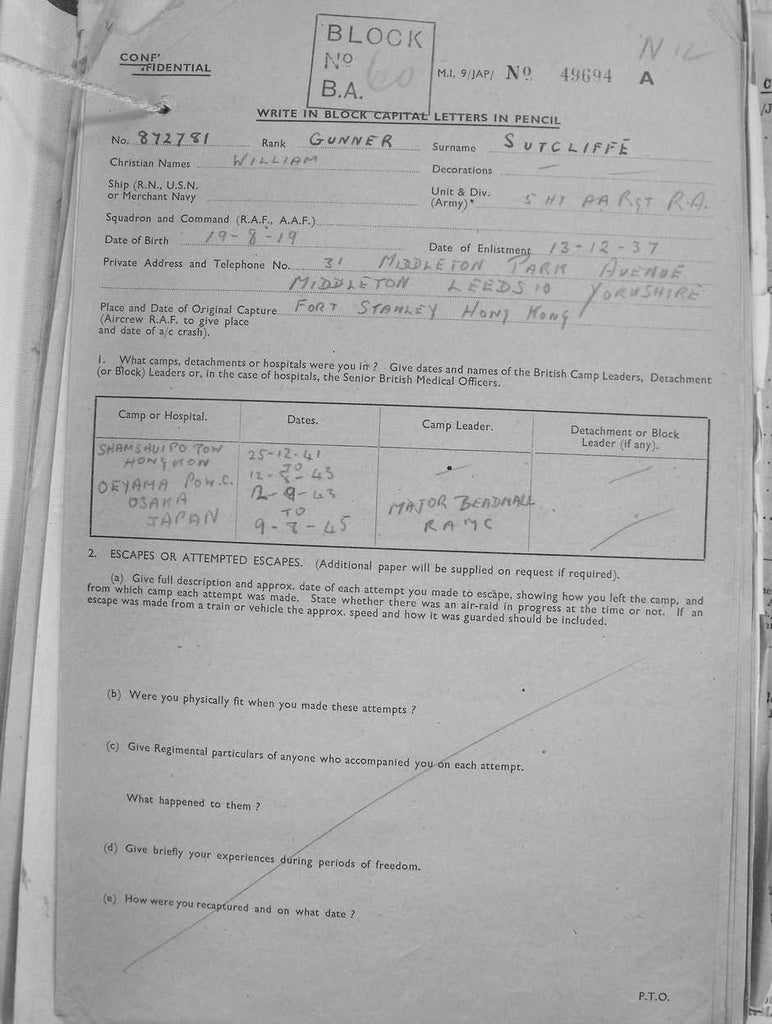 CONF'
IDENTIAL
BLOCK
No 60
B.A.
NIL
M.I. 9/JAP/ No 49694 A
WRITE IN BLOCK CAPITAL LETTERS IN PENCIL
No. 872781 Rank GUNNER Surname SUTCLIFFE
Christian Names WILLIAM Decorations —
Ship (R.N., U.S.N.
or Merchant Navy
Unit & Div.
(Army)* 5 HY AA RGT R.A.
Squadron and Command (R.A.F., A.A.F.)
Date of Birth 19-8-19 Date of Enlistment 13-12-37
Private Address and Telephone No. 31 MIDDLETON PARK AVENUE
MIDDLETON LEEDS 10 YORKSHIRE
Place and Date of Original Capture FORT STANLEY HONG KONG
(Aircrew R.A.F. to give place
and date of a/c crash).
1. What camps, detachments or hospitals were you in? Give dates and names of the British Camp Leaders, Detachment
(or Block) Leaders or, in the case of hospitals, the Senior British Medical Officers.
Camp or Hospital. Dates. Camp Leader. Detachment or Block
Leader (if any).
SHAMSHUIPO POW 25-12-41
HONG KON TO
12-8-43
OEYAMA POW.C. 12-9-43
OSAKA TO MAJOR BEADNALL
JAPAN 9-8-45 RAMC
2. ESCAPES OR ATTEMPTED ESCAPES. (Additional paper will be supplied on request if required).
(a) Give full description and approx. date of each attempt you made to escape, showing how you left the camp, and
from which camp each attempt was made. State whether there was an air-raid in progress at the time or not. If an
escape was made from a train or vehicle the approx. speed and how it was guarded should be included.
(b) Were you physically fit when you made these attempts ?
(c) Give Regimental particulars of anyone who accompanied you on each attempt.
What happened to them ?
(d) Give briefly your experiences during periods of freedom.
(e) How were you recaptured and on what date ?
P.T.O.